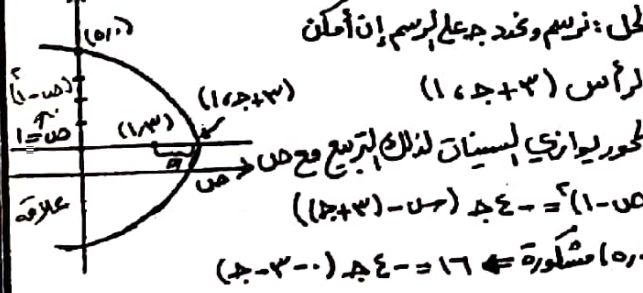 الحل : نرسم ونحدد جـ على الرسم إن أمكن
الرأس (٣+جـ ، ١)
المحور يوازي السينات لذلك التربيع مع ص
(ص-١)² = -٤جـ (س-(٣+جـ))
(٠،٥) مشكورة ⇐ ١٦ = -٤جـ (٠-٣-جـ)
(٥،٠)
(ص-١)²
ص=١
(١،٣)
(٣+جـ،١)
جـ
س
علاقة